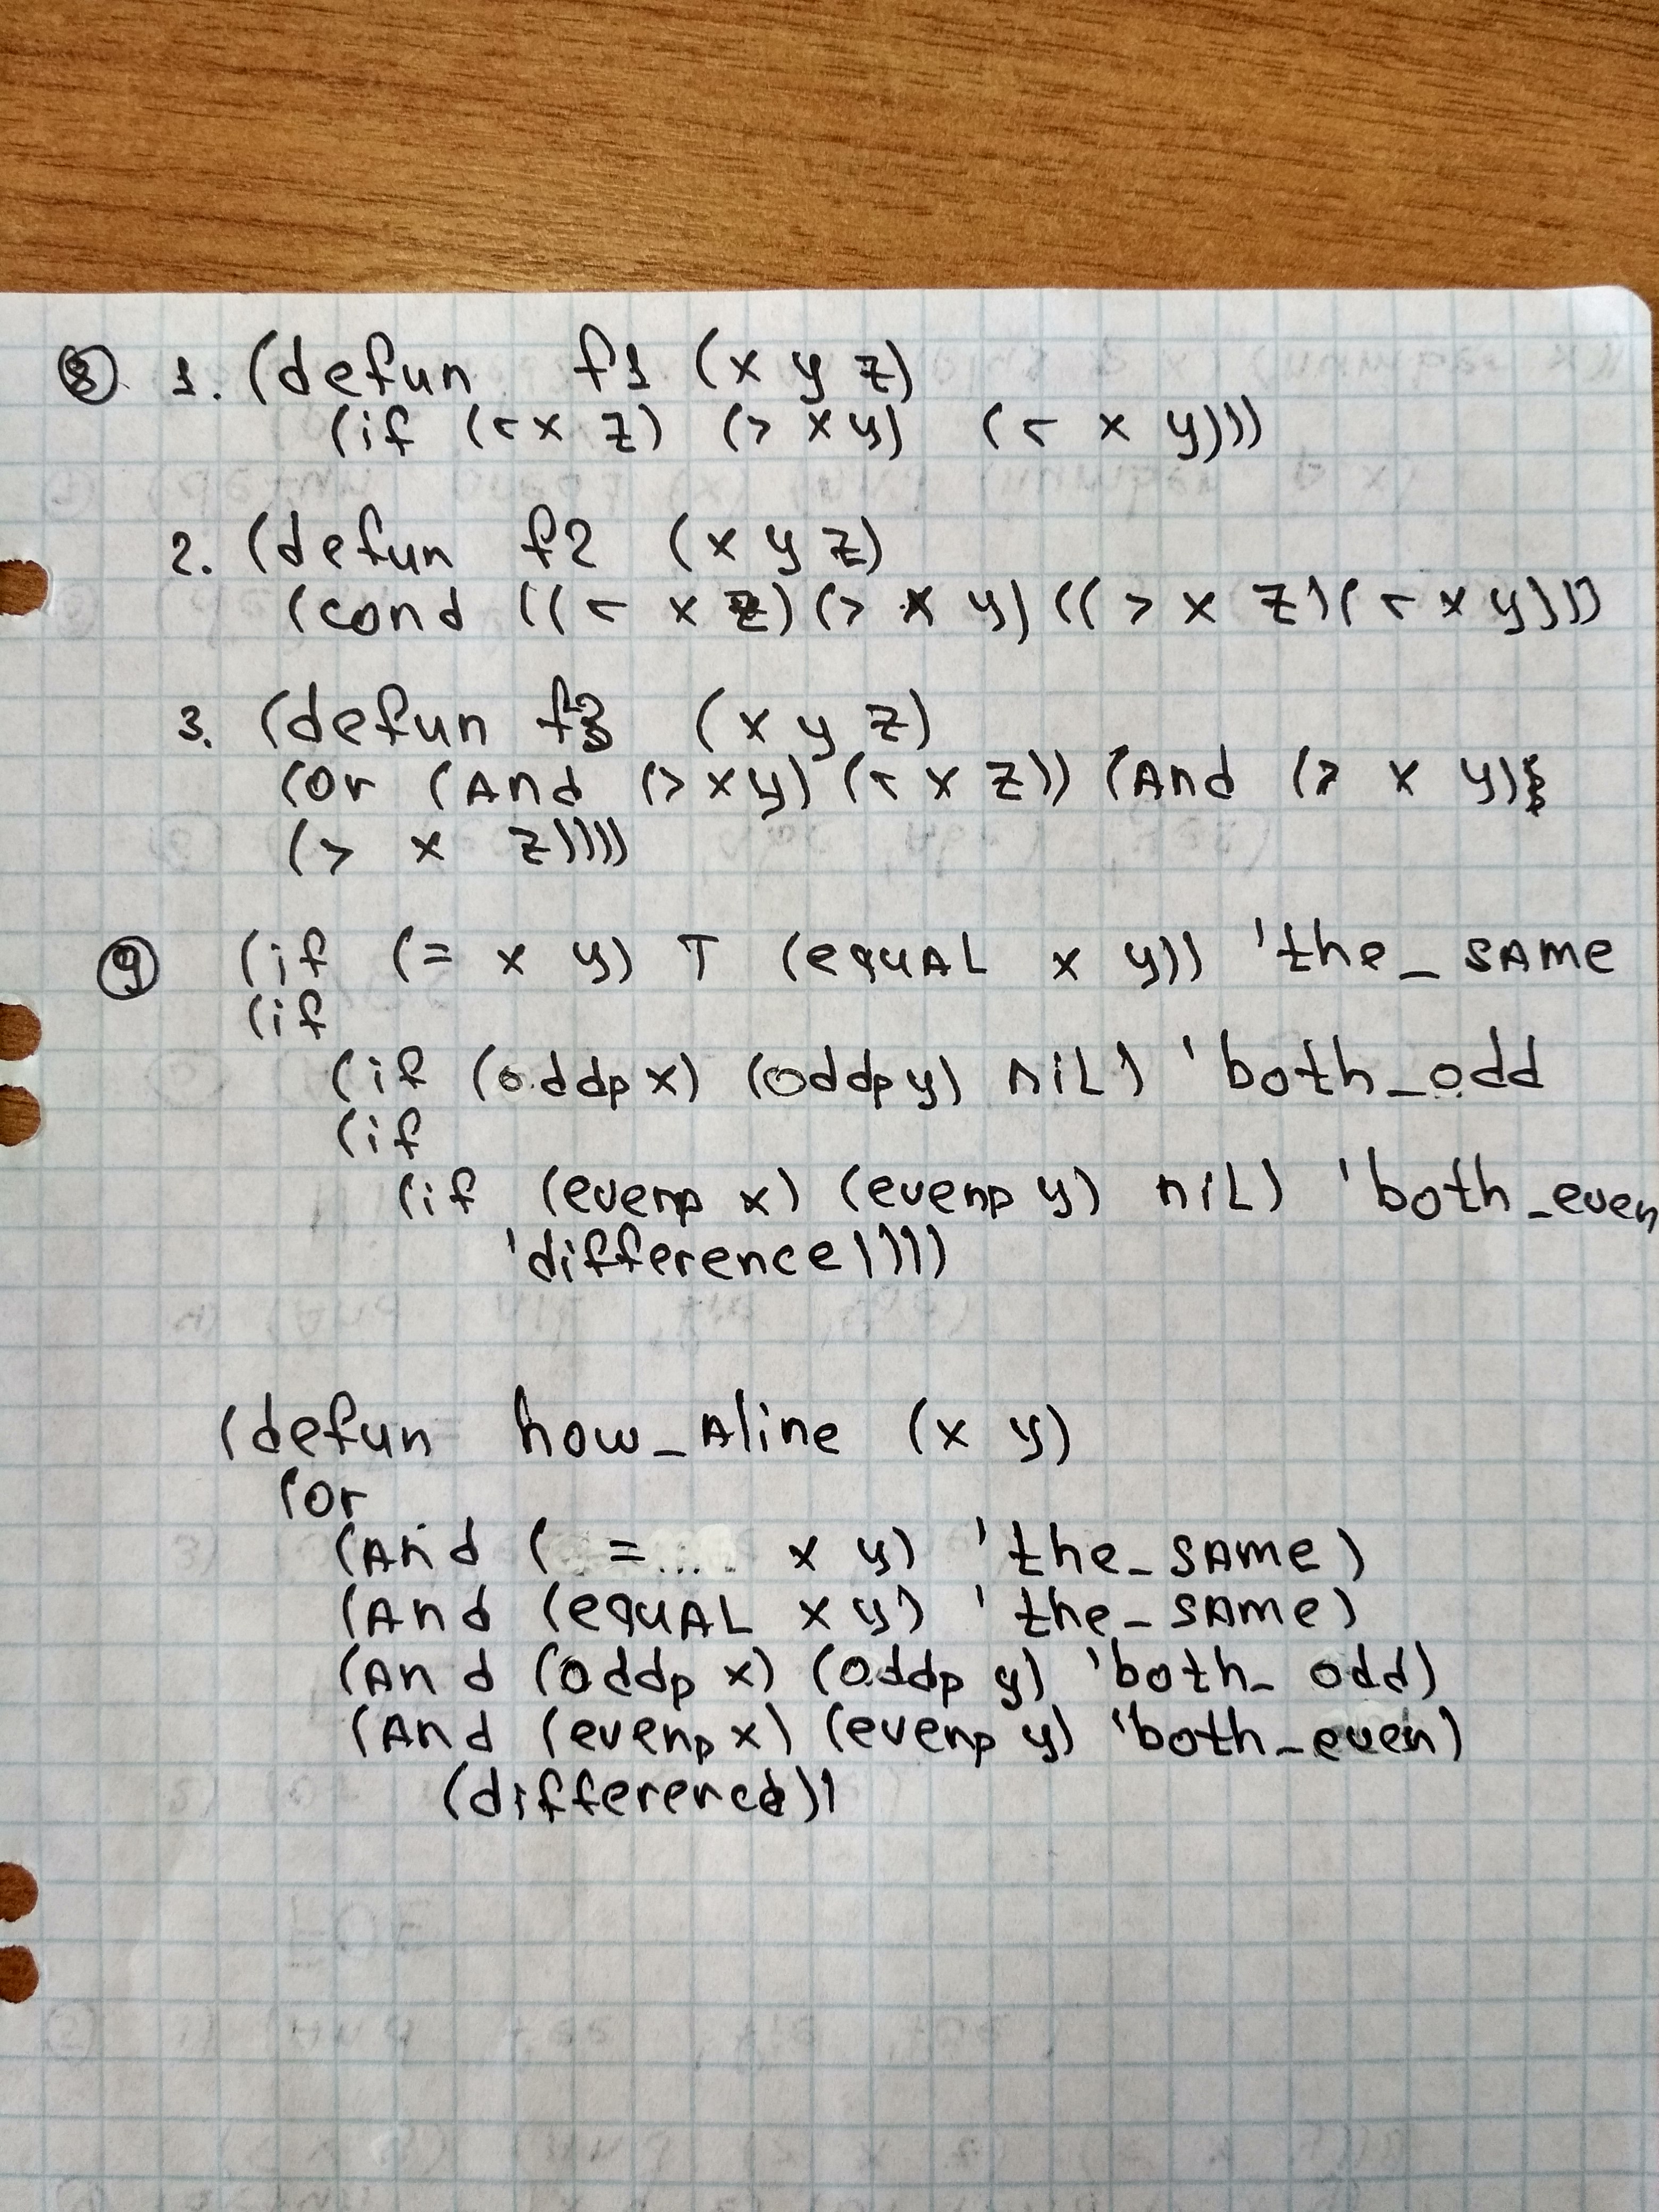 ⑧ 1. (defun f1 (x y z)
(if (< x z) (> x y) (< x y)))
2. (defun f2 (x y z)
(cond ((< x z) (> x y) ((> x z) (< x y))))
3. (defun f3 (x y z)
(or (And (> x y) (< x z)) (And (> x y)
(> x z))))
⑨ (if (= x y) T (equAL x y)) 'the_SAme
(if
(if (oddp x) (oddp y) niL) 'both_odd
(if
(if (evenp x) (evenp y) niL) 'both_even
'difference))))
(defun how_Aline (x y)
(or
(And ( = x y) 'the_SAme)
(And (equAL x y) 'the_SAme)
(And (oddp x) (oddp y) 'both_odd)
(And (evenp x) (evenp y) 'both_even)
(difference))